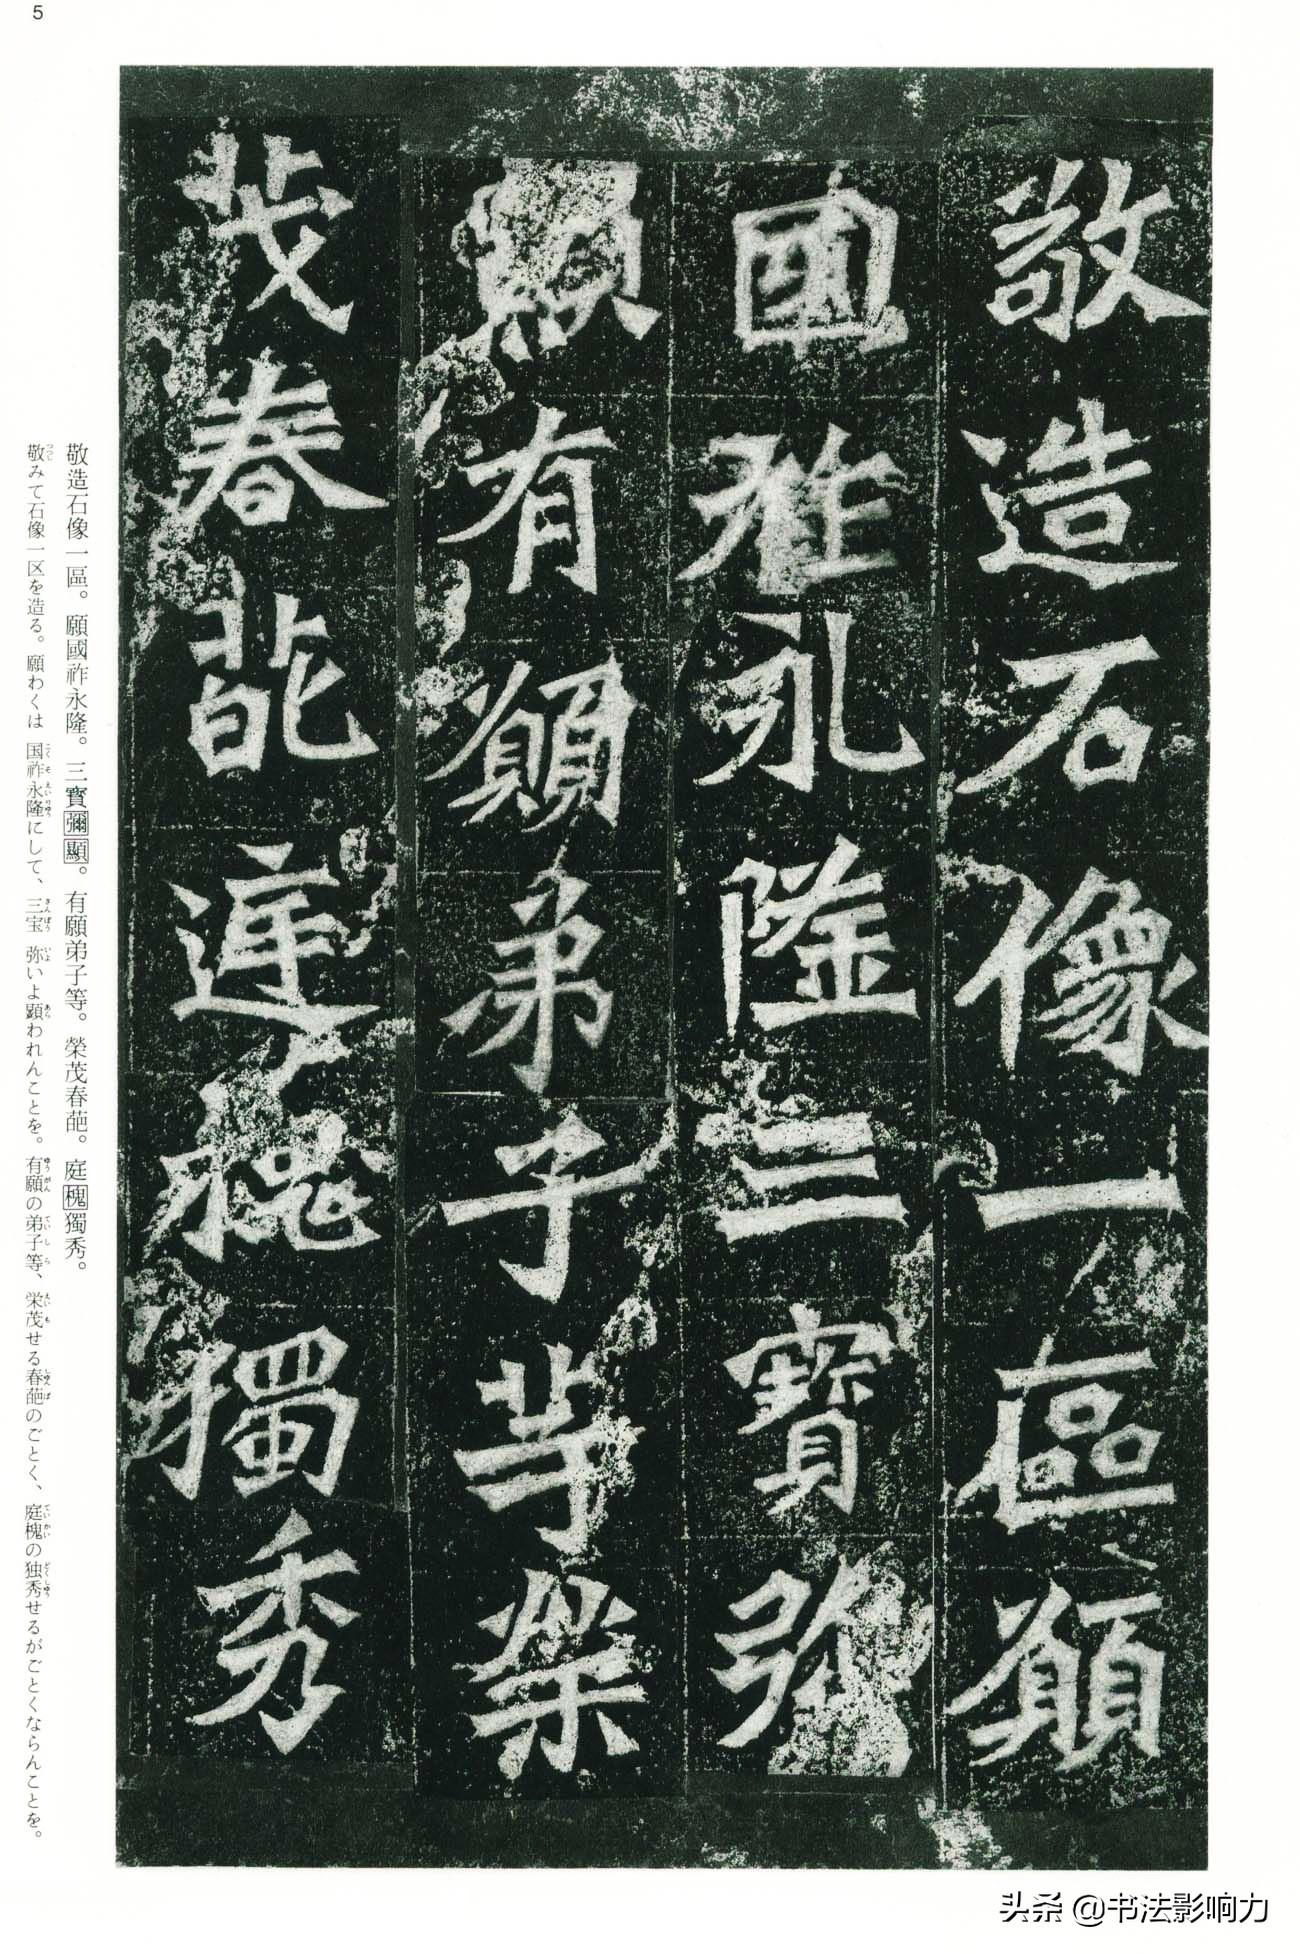 5
敬造石像一區願
國祚永隆三寶彌
顯有願弟子等榮
茂春葩庭槐獨秀
敬造石像一區。願國祚永隆。三寳彌顯。有願弟子等。榮茂春葩。庭槐獨秀。
敬みて石像一区を造る。願わくは国祚永隆にして、三宝弥いよ顕われんことを。有願の弟子等、栄茂せる春葩のごとく、庭槐の独秀せるがごとくならんことを。
头条 @书法影响力